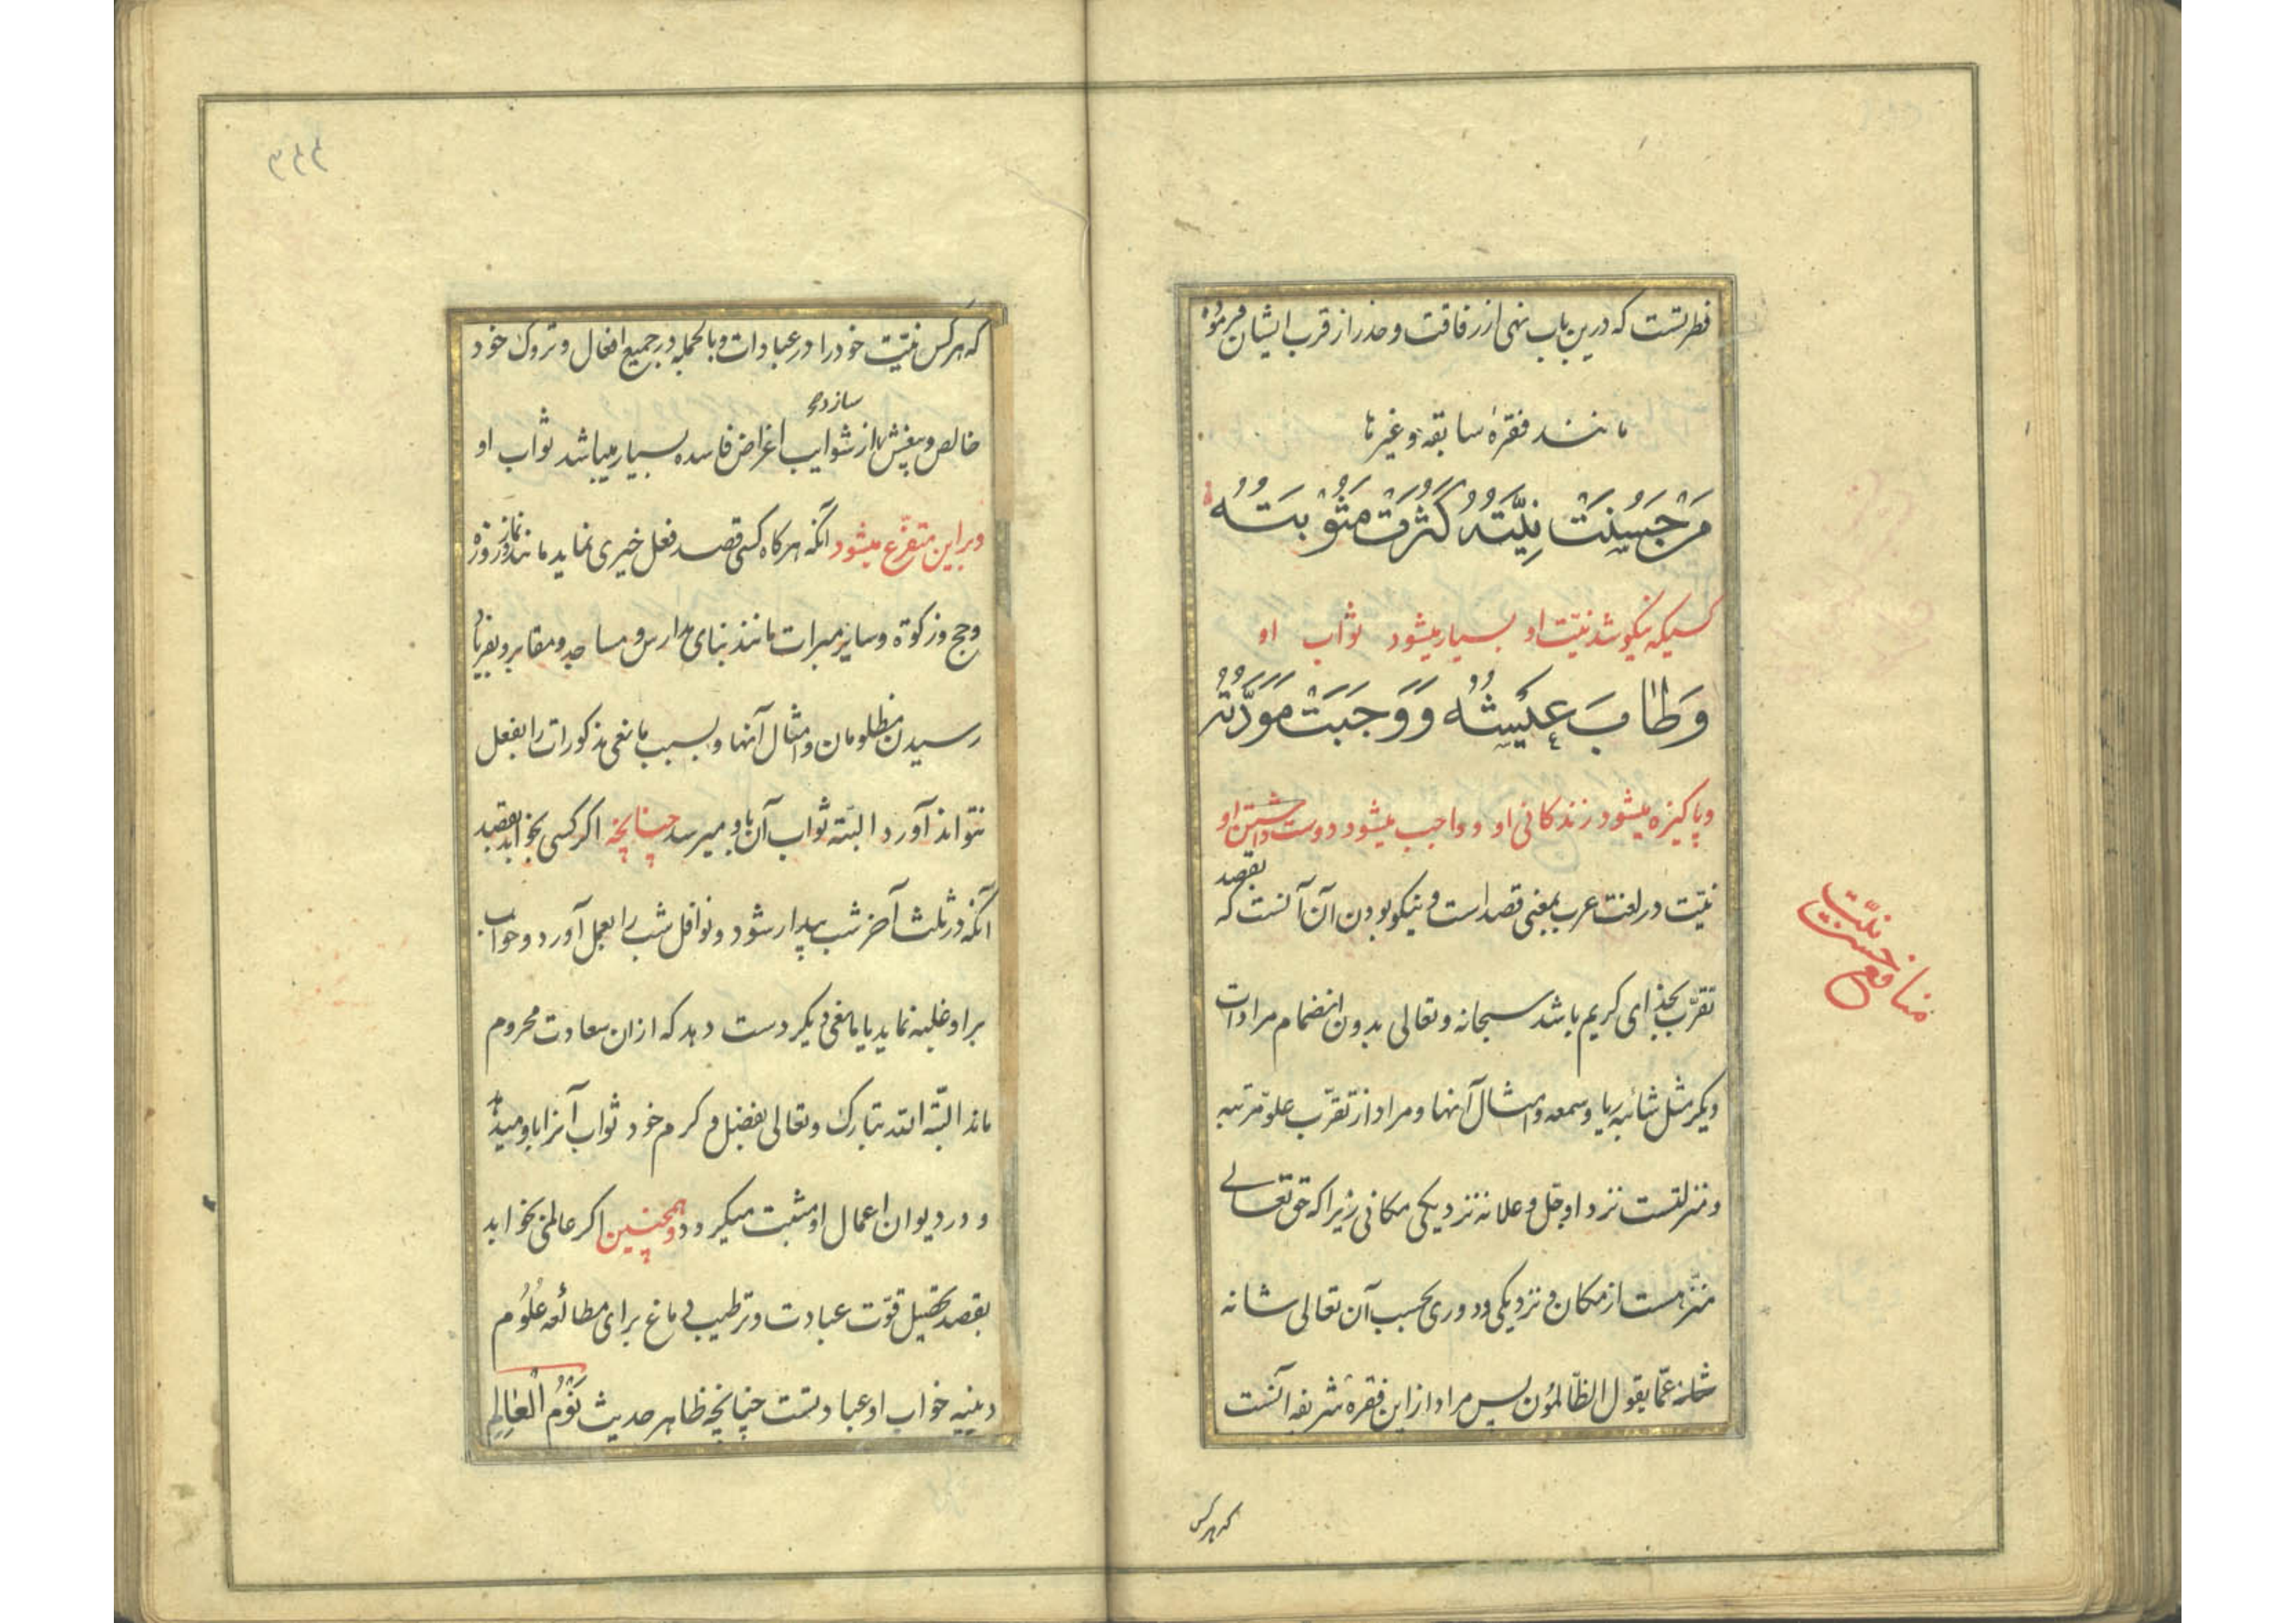 فطرتست که درین باب نهی از رفاقت و حذر از قرب ایشان فرموده
مانند فقرهٔ سابقه و غیرها
مَنْ حَسُنَتْ نِیَّتُهُ کَثُرَتْ مَثُوبَتُهُ
کسیکه نیکو شد نیّت او بسیار میشود ثواب او
وَطَابَ عَیْشُهُ وَوَجَبَتْ مَوَدَّتُهُ
و پاکیزه میشود زندکانی او و واجب میشود دوست داشتن او
نیّت در لغت عرب بمعنی قصد است و نیکو بودن آن آنست که بقصد
تقرّب بخدای کریم باشد سبحانه و تعالی بدون انضمام مرادات
دیکر مثل شائبه ریا و سمعه و امثال آنها و مراد از تقرّب علوّ مرتبه
و منزلتست نزد او جل و علا نه نزدیکی مکانی زیرا که حق تعالی
منزّهست از مکان و نزدیکی و دوری بحسب آن تعالی شانه
شانه عمّا یقول الظّالمُون پس مراد از این فقرهٔ شریفه آنست
که هر کس
منافع حسن نیّت
۳۴۴
که هر کس نیّت خود را در عبادات و بالجمله در جمیع افعال و تروک خود
خالص و بیغش از شوایب اغراض فاسده سازد بسیار میباشد ثواب او
و براین متفرّع میشود آنکه هر کاه کسی قصد فعل خیری نماید مانند نماز و روزه
و حج و زکوة و سایر مبرات مانند بنای مدارس و مساجد و مقابر و بفریاد
رسیدن مظلومان و امثال آنها و بسبب مانعی مذکورات را بفعل
نتواند آورد البتّه ثواب آن باو میرسد چنانچه اکر کسی بخوابد بقصد
آنکه در ثلث آخر شب بیدار شود و نوافل شب را بعمل آورد و خواب
براو غلبه نماید یا مانعی دیکر دست دهد که ازان سعادت محروم
ماند البتّه الله تبارک و تعالی بفضل و کرم خود ثواب آنرا باو میدهد
و در دیوان اعمال او مثبت میکردد و همچنین اکر عالمی بخوابد
بقصد تحصیل قوّت عبادت و ترطیب دماغ برای مطالعه علُوم
دینیه خواب او عبادتست چنانچه ظاهر حدیث نَوْمُ الْعٰالِمِ